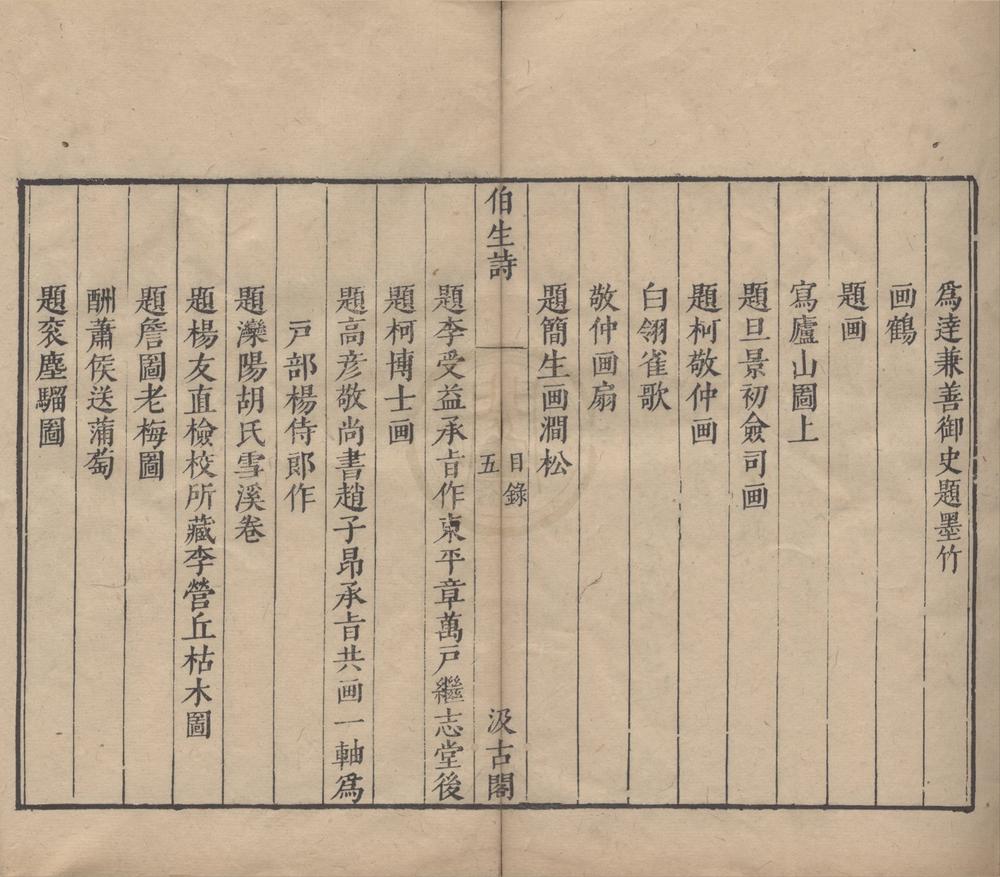 爲逹兼善御史題墨竹
画鶴
題画
寫廬山圖上
題旦景初僉司画
題柯敬仲画
白翎雀歌
敬仲画扇
題簡生画澗松
伯生詩
目錄
五
汲古閣
題李受益承旨作東平章萬戸繼志堂後
題柯博士画
題高彥敬尚書趙子昂承旨共画一軸爲
戸部楊侍郎作
題灤陽胡氏雪溪卷
題楊友直檢校所藏李營丘枯木圖
題詹圖老梅圖
酬蕭侯送蒲萄
題衮塵騮圖